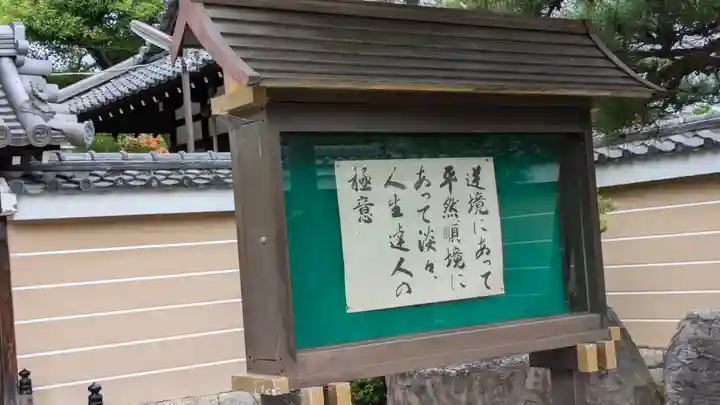 逆境にあって
平然順境に
あって淡々、
人生達人の
極意